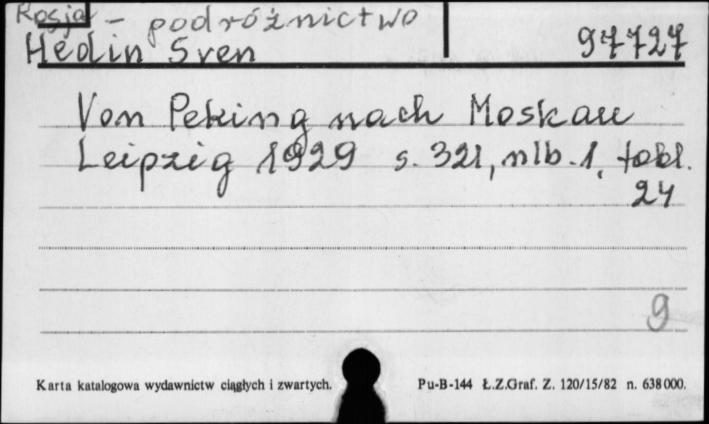 Rosja - podróżnictwo
Hedin Sven 97727
Von Peking nach Moskau
Leipzig 1929 s. 321, nlb. 1, tabl.
24
9
Karta katalogowa wydawnictw ciągłych i zwartych. Pu-B-144 Ł.Z.Graf. Z. 120/15/82 n. 638000.